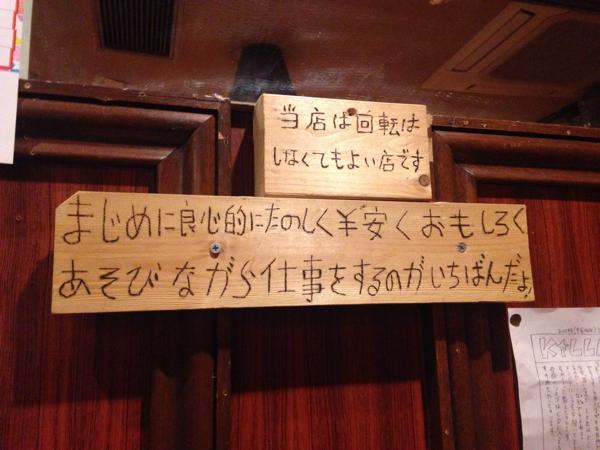 当店は回転は
しなくてもよい店です
まじめに良心的にたのしく¥安くおもしろく
あそびながら仕事をするのがいちばんだよ!
KILL